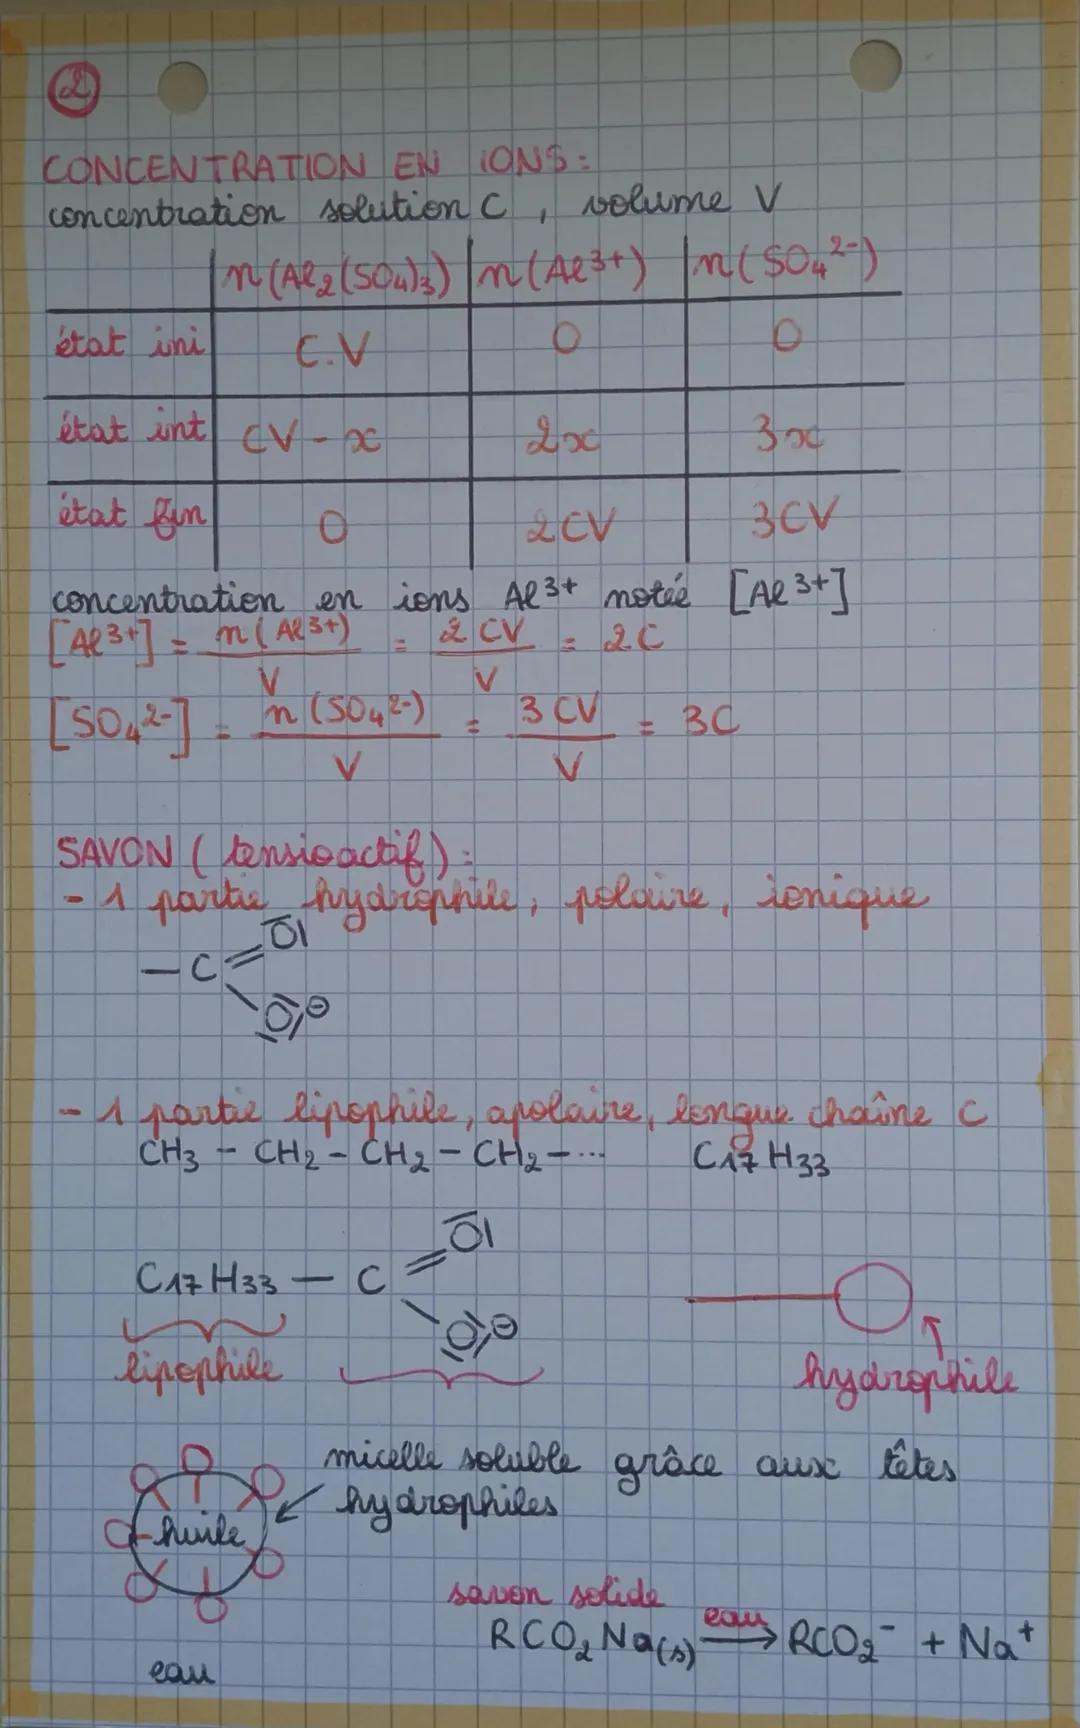 2
CONCENTRATION EN IONS :
concentration solution C , volume V
n(Al2(SO4)3) n(Al3+) n(SO4 2-)
état ini C.V 0 0
état int CV - x 2x 3x
état fin 0 2CV 3CV
concentration en ions Al3+ notée [Al3+]
[Al3+] = n(Al3+)/V = 2CV/V = 2C
[SO4 2-] = n(SO4 2-)/V = 3CV/V = 3C
SAVON ( tensioactif ) :
- 1 partie hydrophile, polaire, ionique
O
- C
O ⊖
- 1 partie lipophile, apolaire, longue chaîne C
CH3 - CH2 - CH2 - CH2 - ... C17H33
O
C17H33 - C
O ⊖
lipophile
hydrophile
micelle soluble grâce aux têtes
hydrophiles
huile
savon solide
RCO2Na(s) eau → RCO2- + Na+
eau